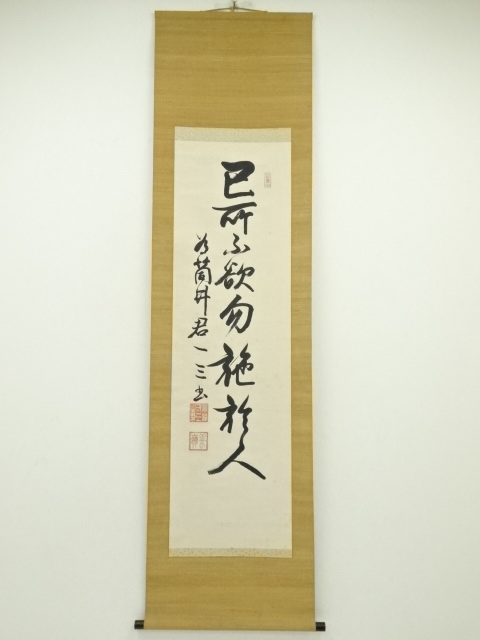 己所不欲勿施於人
為筒井君一三書